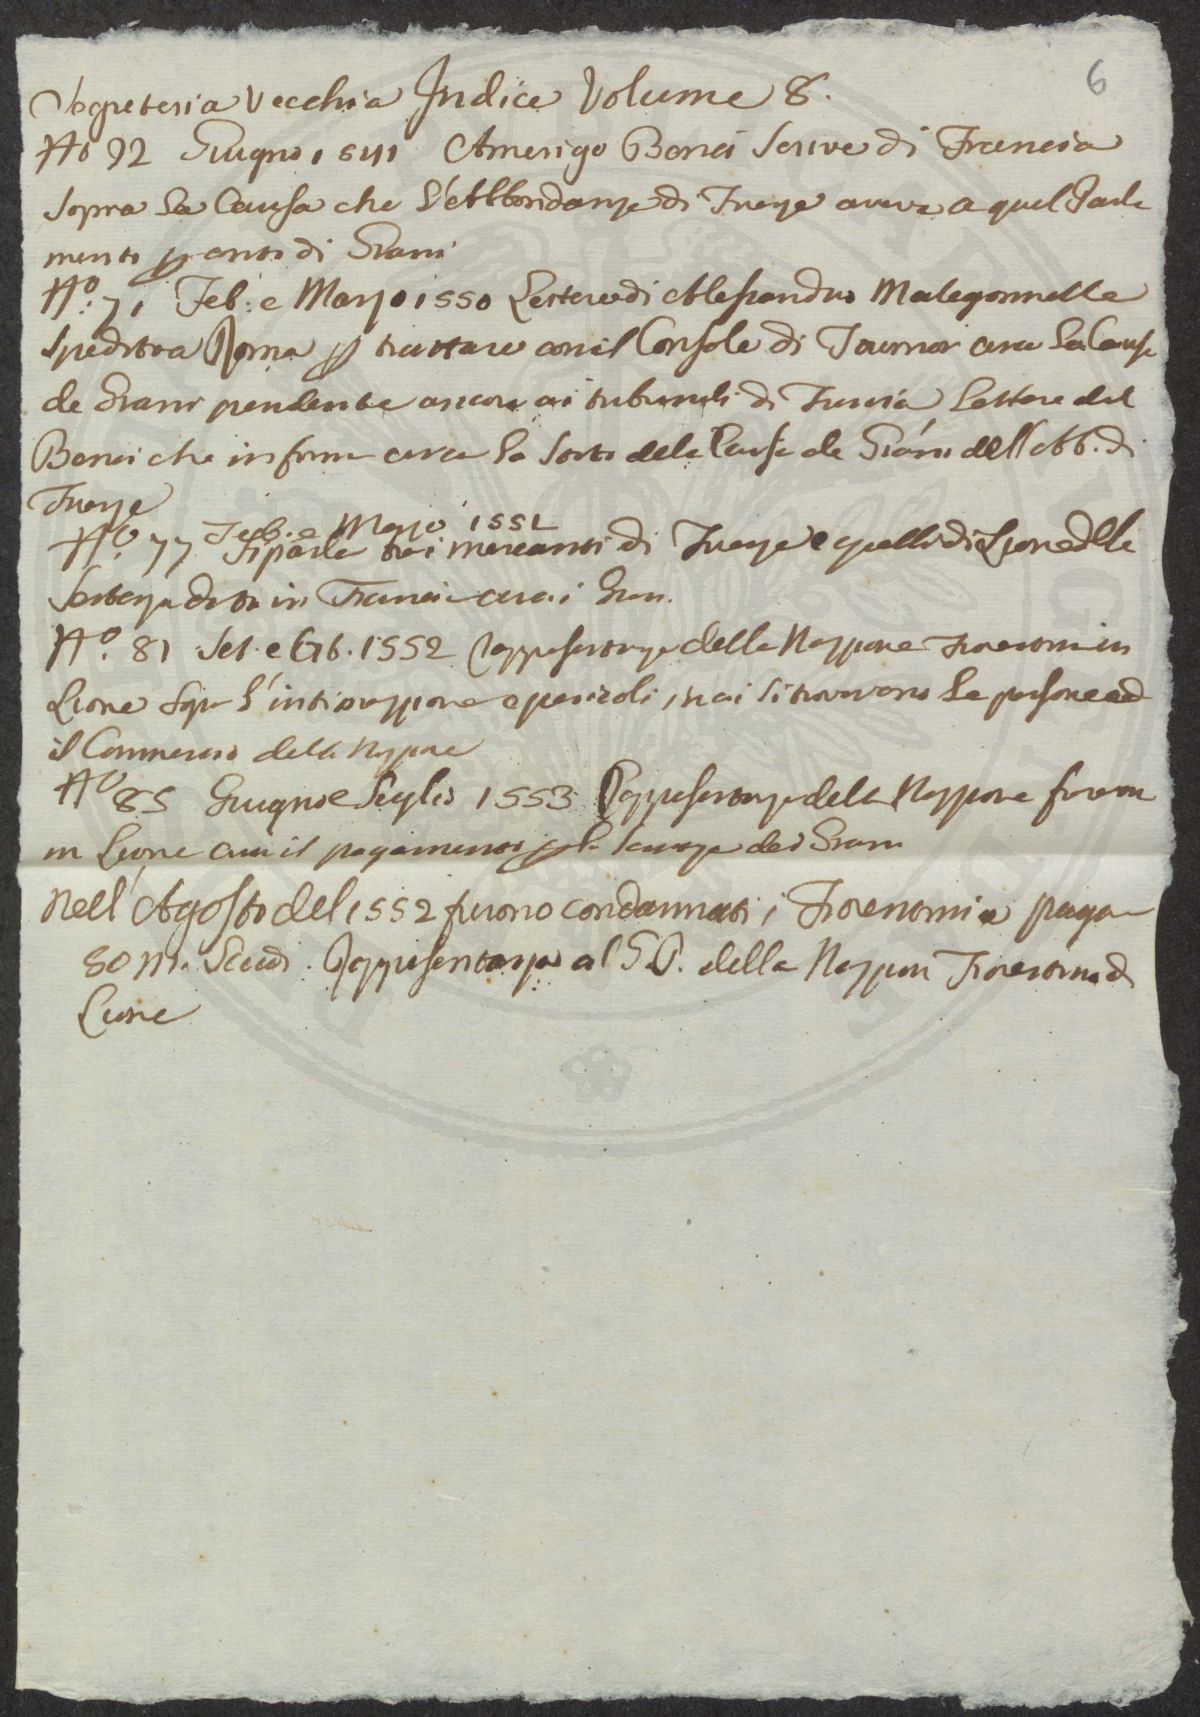 6
Segreteria Vecchia Indice Volume 8.
No 92 Giugno 1541 Amerigo Benci scrive di Francia
sopra la Causa che l'Abbondanza di Firenze aveva a quel Parla
mento p conto di Grani
No. 71 Feb: e Marzo 1550 Lettere di Alessandro Malegonnelle
spedito a Roma p trattare con il Console di Tournon circa la Causa
de Grani pendente ancora ai tribunali di Francia Lettere del
Benci che informa circa la sorte dela Causa de Grani dell Abb. di
Firenze
Feb. e Marzo 1551
No. 77 Si parla tra i mercanti di Firenze e quelli di Lione della
Sentenza data in Francia circa i Grani.
No. 81 Set. e Ott. 1552 Rappresentanza della Nazzione Fiorentina in
Lione sopra l'interruzzione e pericoli, in cui si trovavano le persone ed
il Commercio della Nazzione
No 85 Giugno e Luglio 1553 Rappresentanza della Nazzione fiorentina
in Lione circa il pagamento p la causa dei Grani
Nell' Agosto del 1552 furono condannati i Fiorentini a pagare
50 m. Scudi. Rappresentanza al S D. della Nazzion Fiorentina di
Lione